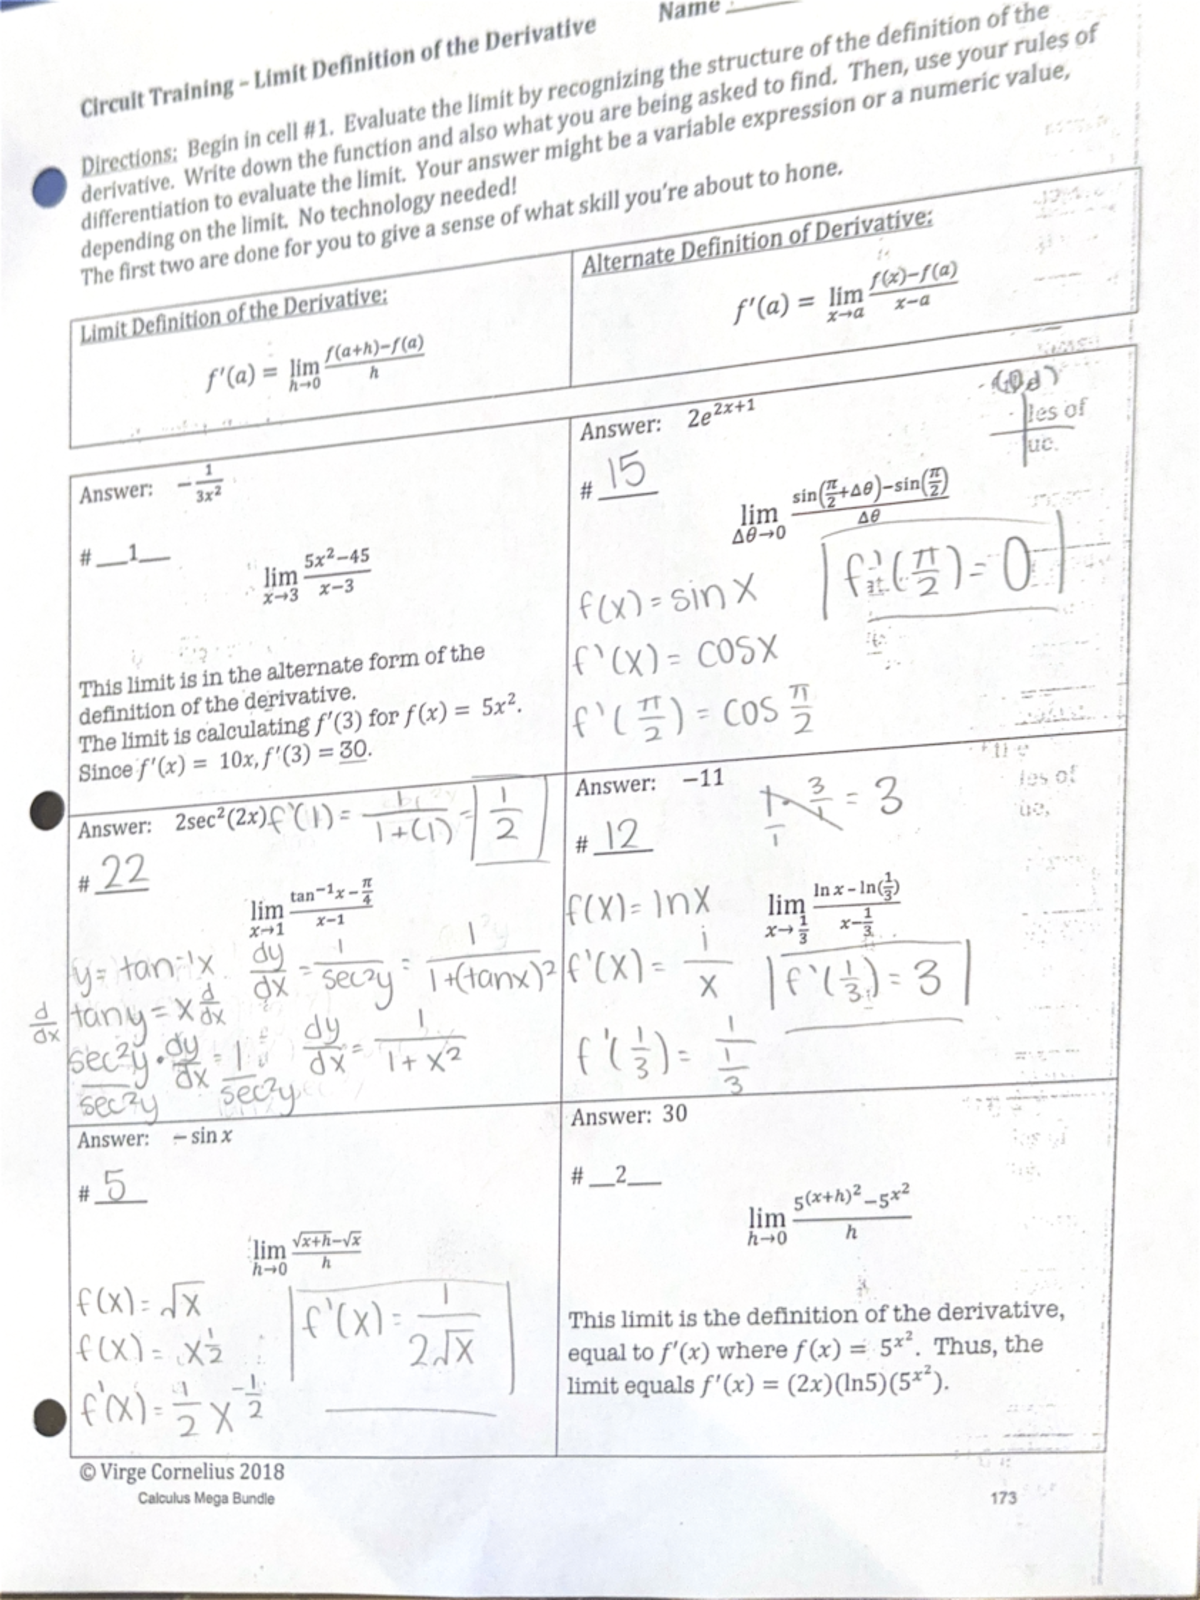 Name
Circuit Training – Limit Definition of the Derivative
Directions: Begin in cell #1. Evaluate the limit by recognizing the structure of the definition of the
derivative. Write down the function and also what you are being asked to find. Then, use your rules of
differentiation to evaluate the limit. Your answer might be a variable expression or a numeric value,
depending on the limit. No technology needed!
The first two are done for you to give a sense of what skill you're about to hone.
Limit Definition of the Derivative:
f'(a) = lim h→0 (f(a+h)−f(a))/h
Alternate Definition of Derivative:
f'(a) = lim x→a (f(x)−f(a))/(x−a)
Answer: −1/(3x²)
# __1__
lim x→3 (5x²−45)/(x−3)
This limit is in the alternate form of the
definition of the derivative.
The limit is calculating f'(3) for f(x) = 5x².
Since f'(x) = 10x, f'(3) = 30.
Answer: 2e^(2x+1)
les of
ue.
# 15
lim Δθ→0 (sin(π/2+Δθ)−sin(π/2))/Δθ
f(x) = sin x
f'(π/2) = 0
f'(x) = cos x
f'(π/2) = cos π/2
Answer: 2sec²(2x)
f'(1) = 1/(1+(1)) = 1/2
# 22
lim x→1 (tan⁻¹x − π/4)/(x−1)
y = tan⁻¹x
dy/dx = 1/sec²y = 1/(1+(tanx)²)
d/dx tan y = x d/dx
sec²y · dy/dx / sec²y = 1/sec²y
dy/dx = 1/(1+x²)
Answer: −11
les of
ue,
# 12
3/1 = 3
lim x→1/3 (ln x − ln(1/3))/(x−1/3)
f(x) = ln x
f'(x) = 1/x
f'(1/3) = 3
f'(1/3) = 1/(1/3)
Answer: − sin x
# 5
lim h→0 (√(x+h)−√x)/h
f(x) = √x
f(x) = x^(1/2)
f'(x) = 1/2 x^(−1/2)
f'(x) = 1/(2√x)
Answer: 30
# __2__
lim h→0 (5^((x+h)²)−5^(x²))/h
This limit is the definition of the derivative,
equal to f'(x) where f(x) = 5^(x²). Thus, the
limit equals f'(x) = (2x)(ln5)(5^(x²)).
© Virge Cornelius 2018
Calculus Mega Bundle
173